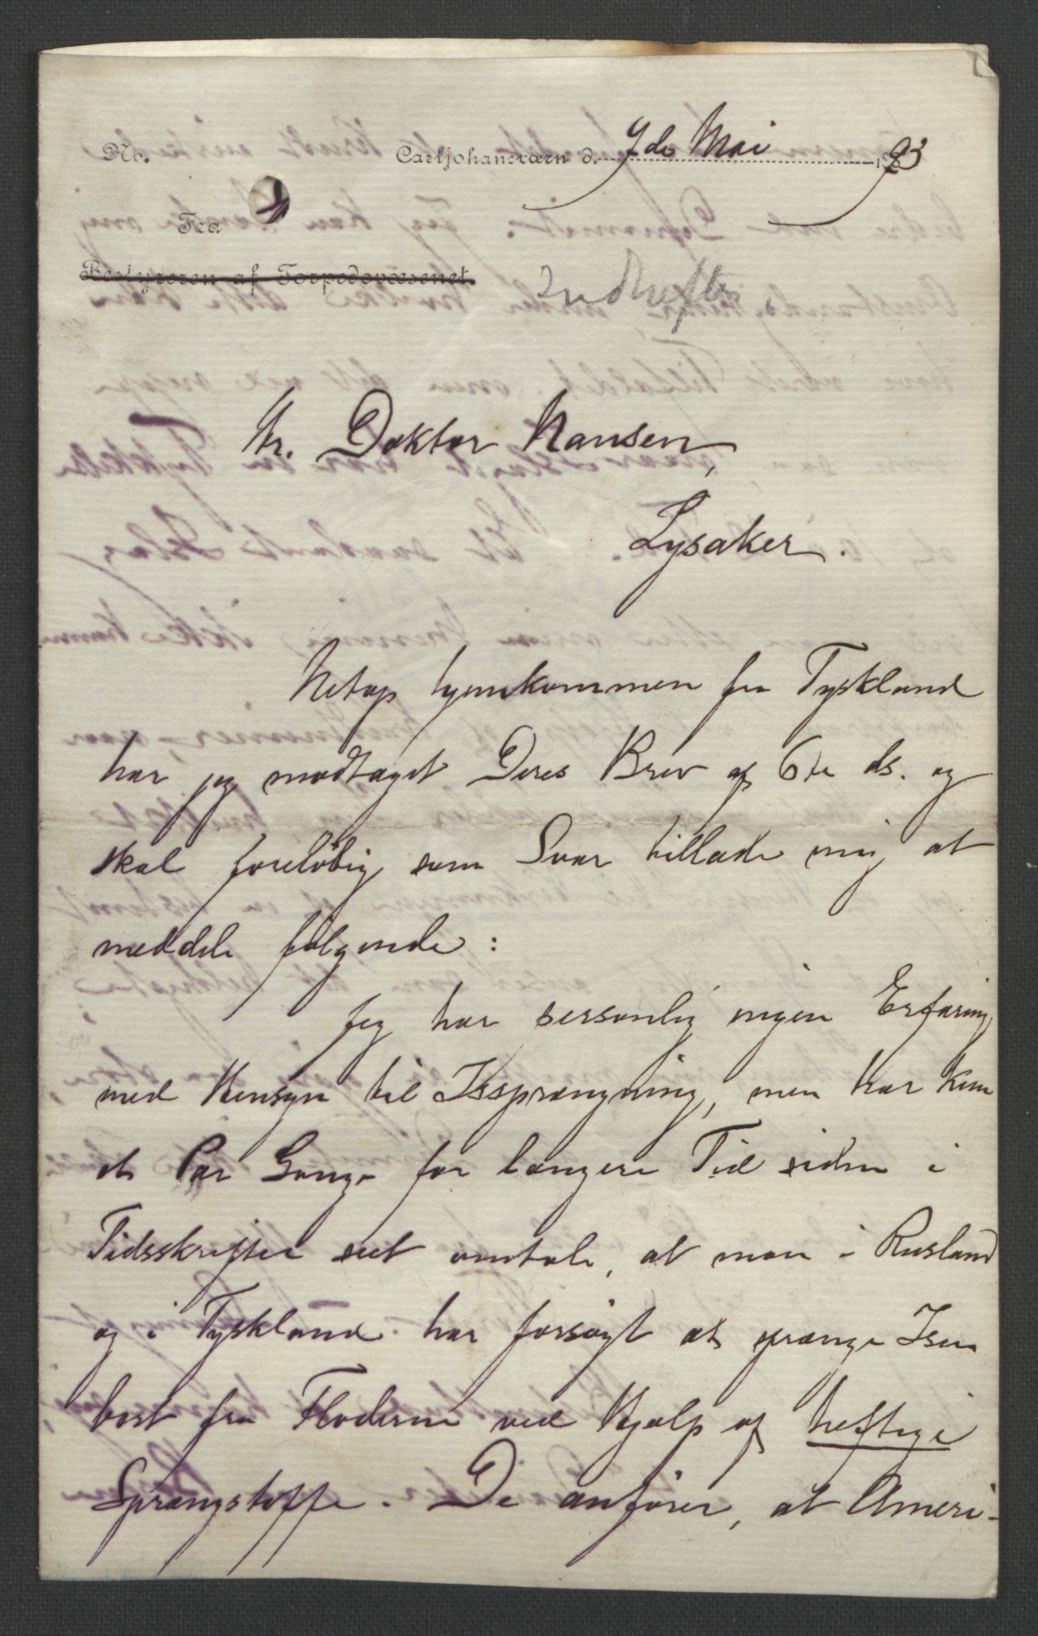 No. Carljohansværn d. 9de Mai 1893
Fra
Bestyreren af Torpedovæsenet.
Indheftes.
Hr. Doktor Nansen,
Lysaker.
Netop hjemkommen fra Tyskland
har jeg modtaget Deres Brev af 6te ds. og
skal foreløbig som Svar tillade mig at
meddele følgende:
Jeg har personlig ingen Erfaring
med Hensyn til Issprængning, men har kun
et Par Gange for længere Tid siden i
Tidsskrifter seet omtale, at man i Rusland
og i Tyskland har forsøgt at sprænge Isen
bort fra Floderne ved Hjælp af heftige
Sprængstoffe. De anfører, at Ameri-